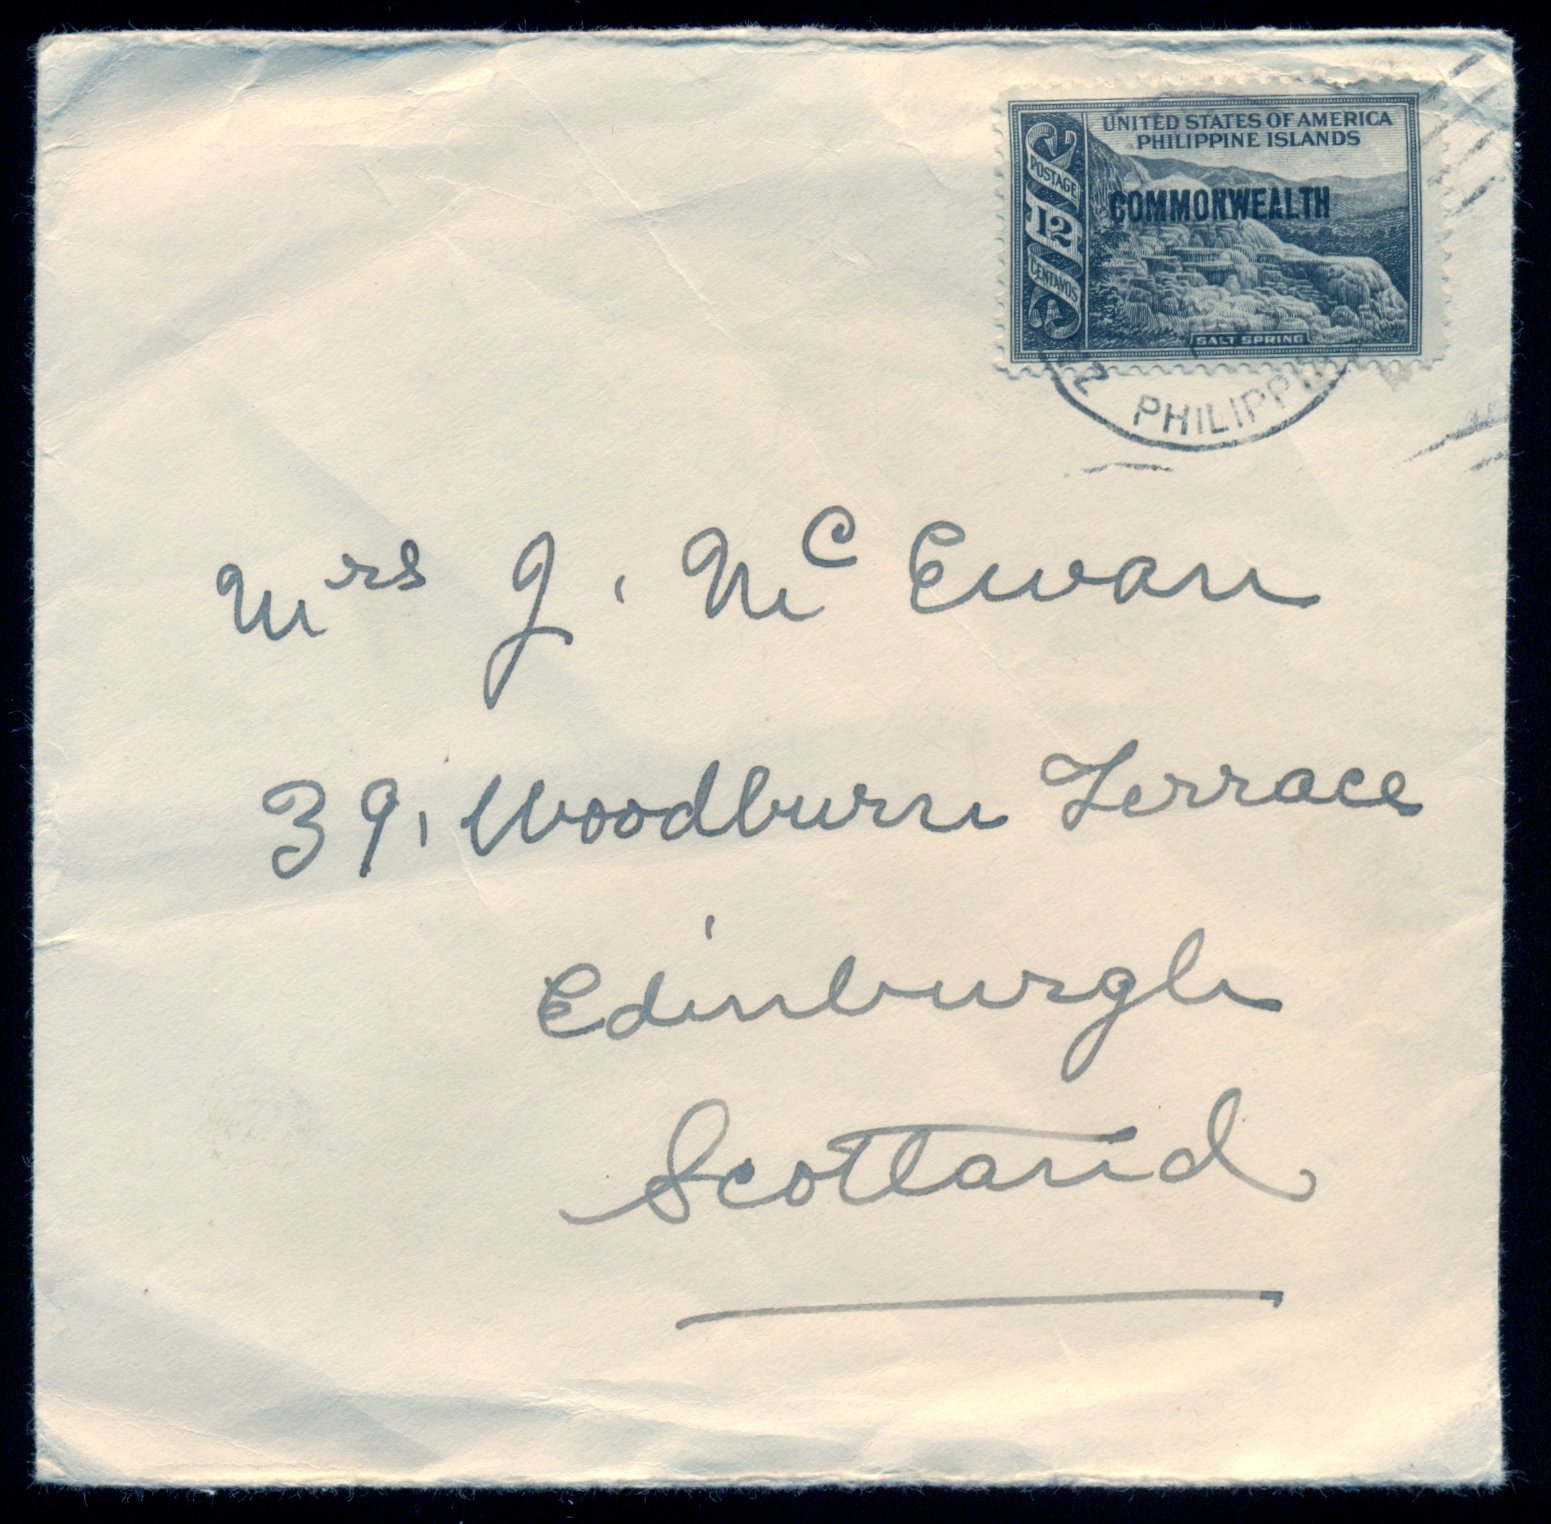 UNITED STATES OF AMERICA
PHILIPPINE ISLANDS
POSTAGE
COMMONWEALTH
12
CENTAVOS
SALT SPRING
PHILIPPI
Mrs J. Mc Ewan
39, Woodburn Terrace
Edinburgh
Scotland